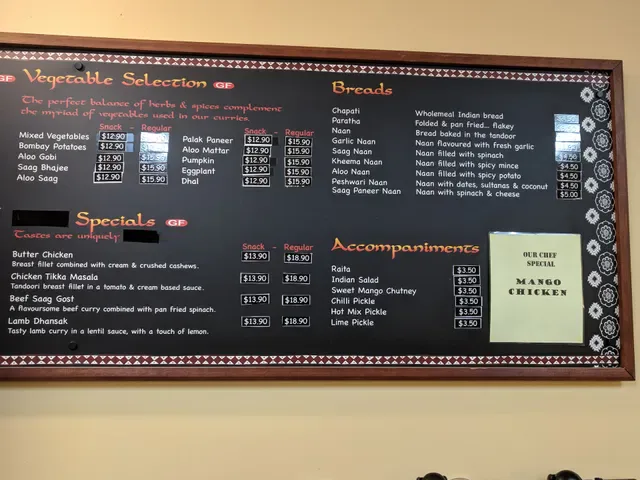 GF Vegetable Selection GF
The perfect balance of herbs & spices complement
the myriad of vegetables used in our curries.
Snack - Regular
Mixed Vegetables $12.90
Bombay Potatoes $12.90
Aloo Gobi $12.90 $15.90
Saag Bhajee $12.90 $15.90
Aloo Saag $12.90 $15.90
Snack - Regular
Palak Paneer $12.90 $15.90
Aloo Mattar $12.90 $15.90
Pumpkin $12.90 $15.90
Eggplant $12.90 $15.90
Dhal $12.90 $15.90
Specials GF
Tastes are uniquely
Snack - Regular
Butter Chicken $13.90 $18.90
Breast fillet combined with cream & crushed cashews.
Chicken Tikka Masala $13.90 $18.90
Tandoori breast fillet in a tomato & cream based sauce.
Beef Saag Gost $13.90 $18.90
A flavoursome beef curry combined with pan fried spinach.
Lamb Dhansak $13.90 $18.90
Tasty lamb curry in a lentil sauce, with a touch of lemon.
Breads
Chapati Wholemeal Indian bread
Paratha Folded & pan fried... flakey
Naan Bread baked in the tandoor
Garlic Naan Naan flavoured with fresh garlic
Saag Naan Naan filled with spinach $4.50
Kheema Naan Naan filled with spicy mince $4.50
Aloo Naan Naan filled with spicy potato $4.50
Peshwari Naan Naan with dates, sultanas & coconut $4.50
Saag Paneer Naan Naan with spinach & cheese $5.00
Accompaniments
Raita $3.50
Indian Salad $3.50
Sweet Mango Chutney $3.50
Chilli Pickle $3.50
Hot Mix Pickle $3.50
Lime Pickle $3.50
OUR CHEF
SPECIAL
MANGO
CHICKEN